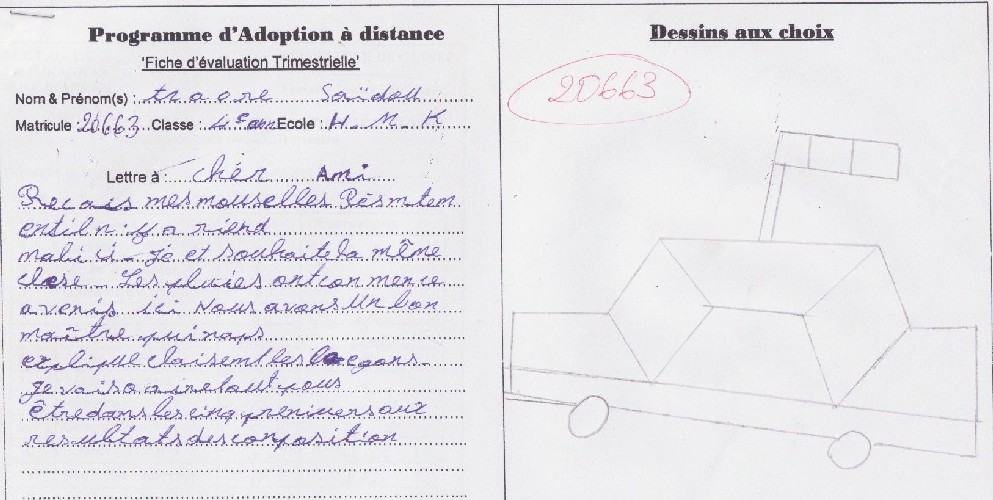 Programme d'Adoption à distance
'Fiche d'évaluation Trimestrielle'
Nom & Prénom(s) : traore Saïdou
Matricule : 20663 Classe : 4e ann Ecole : H M K
Lettre à : Chér Ami
Recais mes mouselles
entiln y a riend
mali ci - je et souhaite la même
chose Les pluies ont con mence
a venir ici Nous avons Un bon
maître qui nous
explique claisemt les leçons
je vais aire tout pous
être dans les cinq preniuers aux
resultats des conposition
Dessins aux choix
20663